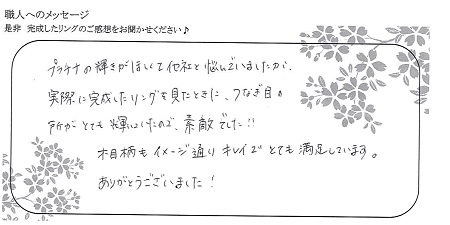 職人へのメッセージ
是非 完成したリングのご感想をお聞かせください♪
プラチナの輝きがほしくて他社と悩んでいましたが、
実際に完成したリングを見たときに、つなぎ目の
所がとても輝いていたので、素敵でした!!
木目柄もイメージ通りキレイでとても満足しています。
ありがとうございました!